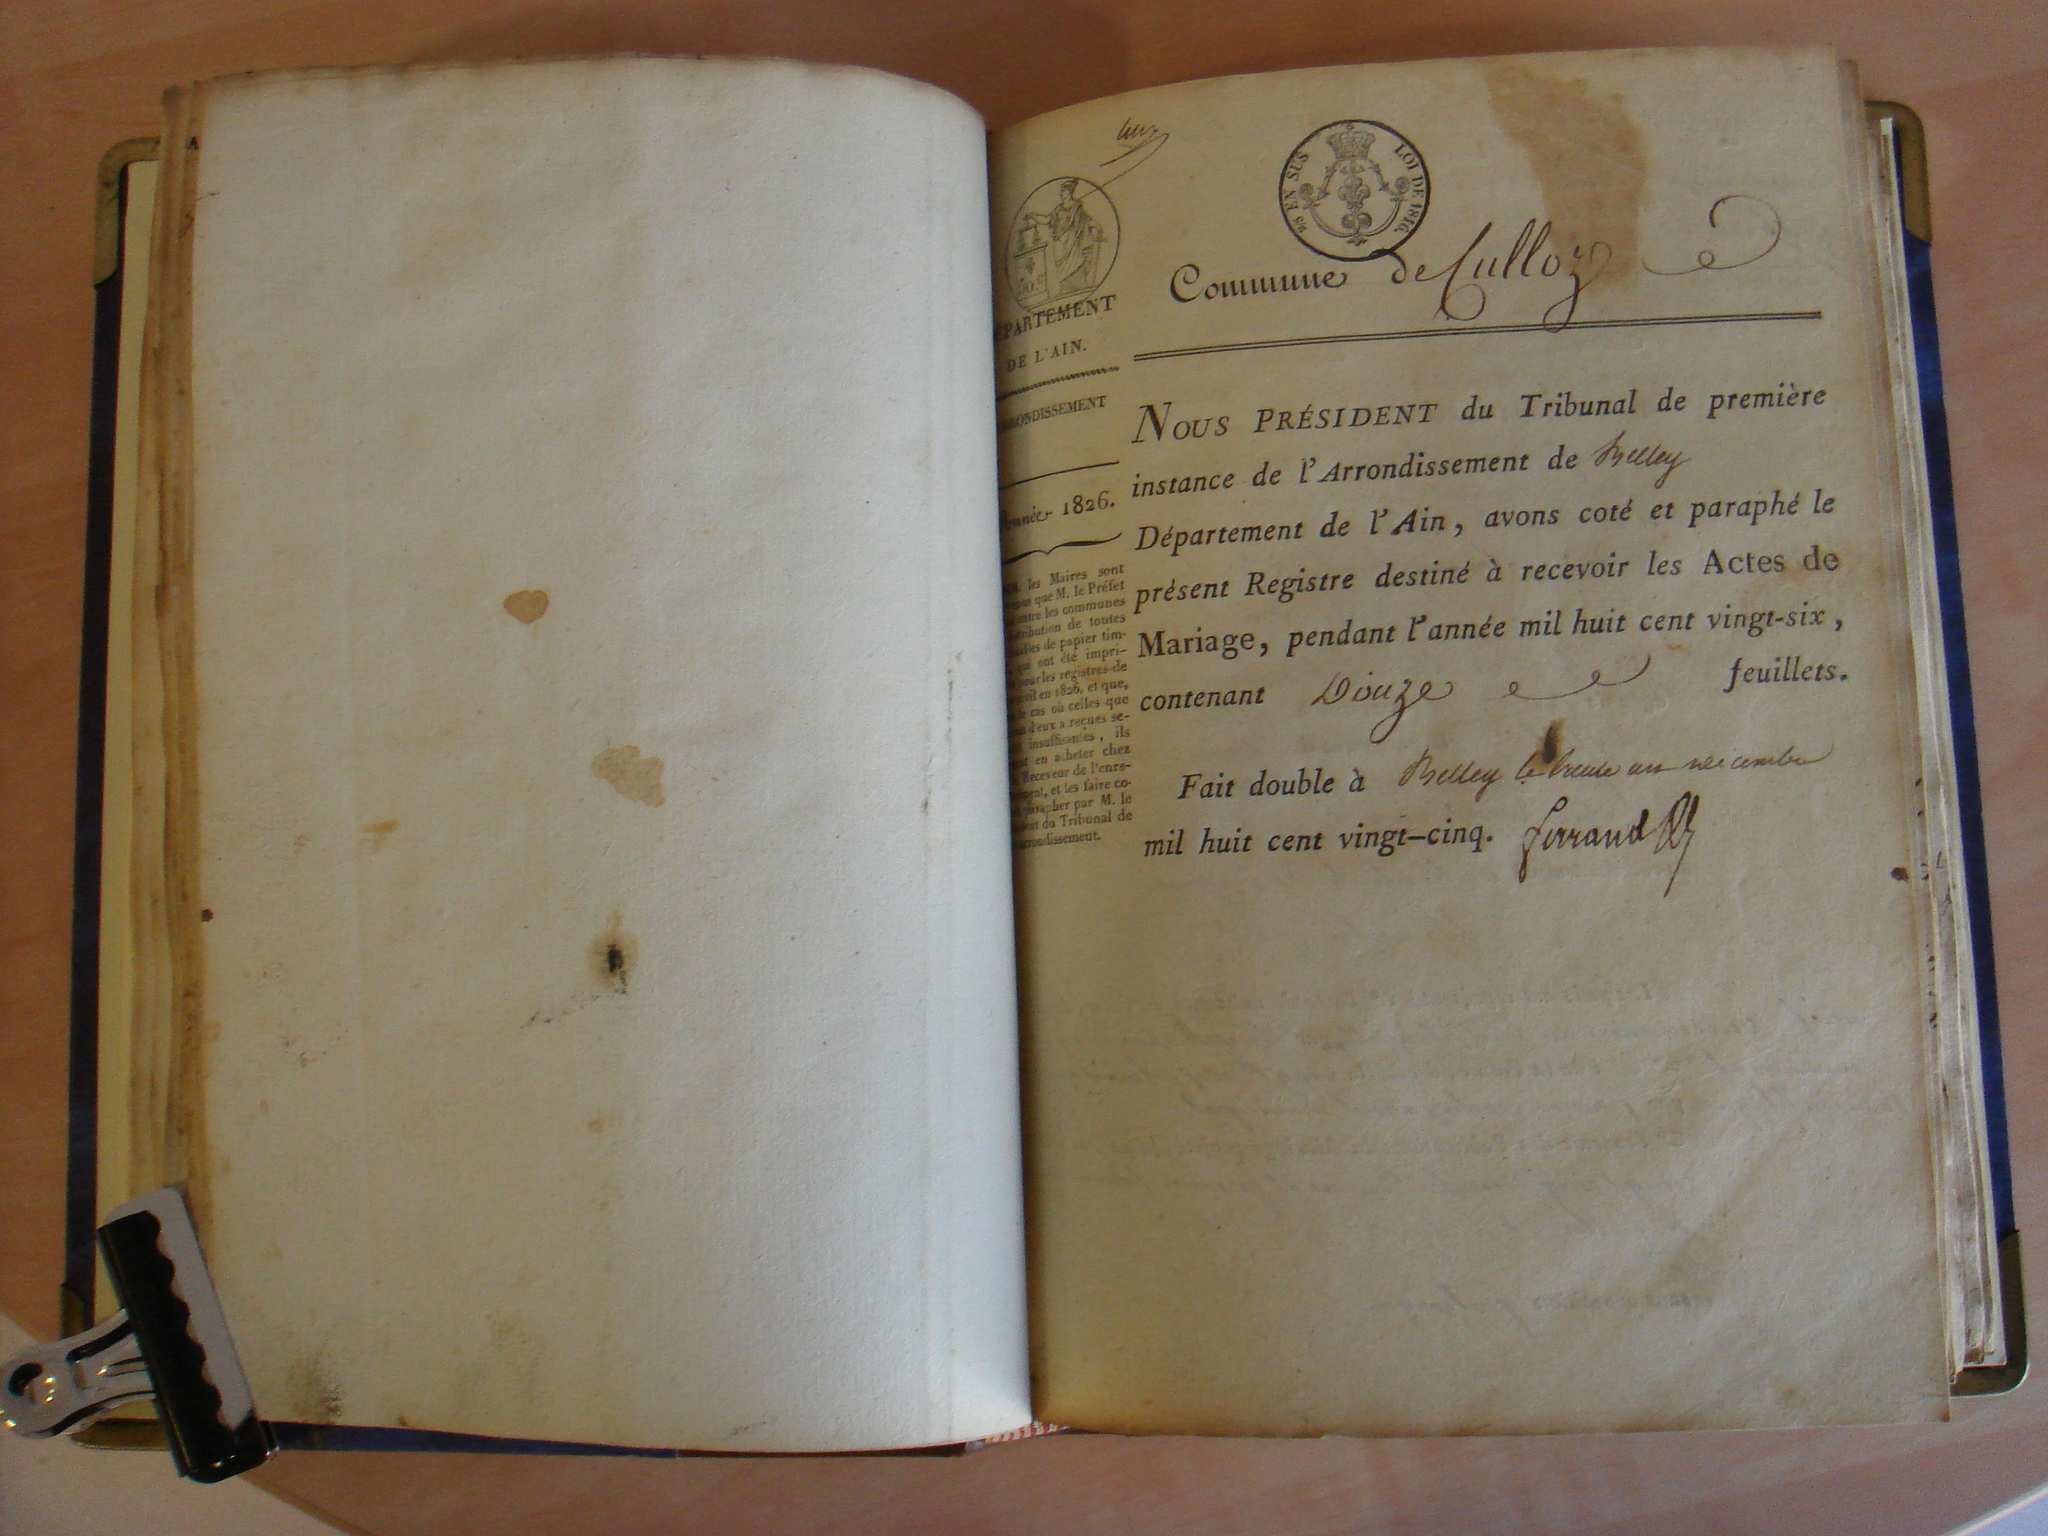 25 EN SUS
LOI DE 1816.
Commune de Culloz
PARTEMENT
DE L'AIN.
ONDISSEMENT
Année 1826.
les Maires sont
que M. le Préfet
entre les communes
tribution de toutes
de papier tim-
qui ont été impri-
pour les registres de
en 1826, et que,
cas où celles que
d'eux a reçues se-
insuffisantes, ils
en acheter chez
Receveur de l'enre-
ment, et les faire co-
parapher par M. le
du Tribunal de
rrondissement.
NOUS PRÉSIDENT du Tribunal de première
instance de l'Arrondissement de Belley
Département de l'Ain, avons coté et paraphé le
présent Registre destiné à recevoir les Actes de
Mariage, pendant l'année mil huit cent vingt-six,
contenant Douze feuillets.
Fait double à Belley le trente un decembre
mil huit cent vingt-cinq. ferrand